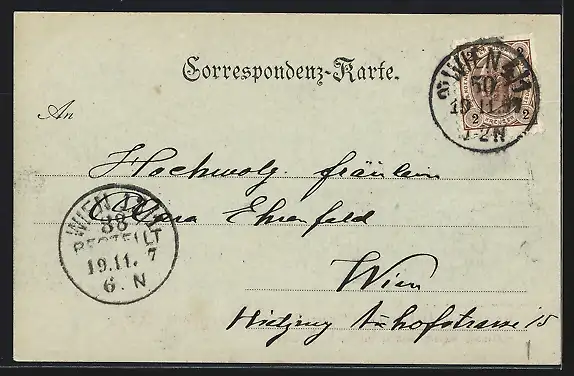 Correspondenz-Karte.
WIEN
50
19.11. 7
-2N
2 2
An
Hochwolg. fräulein
Ehrenfeld
WIEN
38
BESTELLT
19.11. 7
6. N
Wien
hofstrasse 15